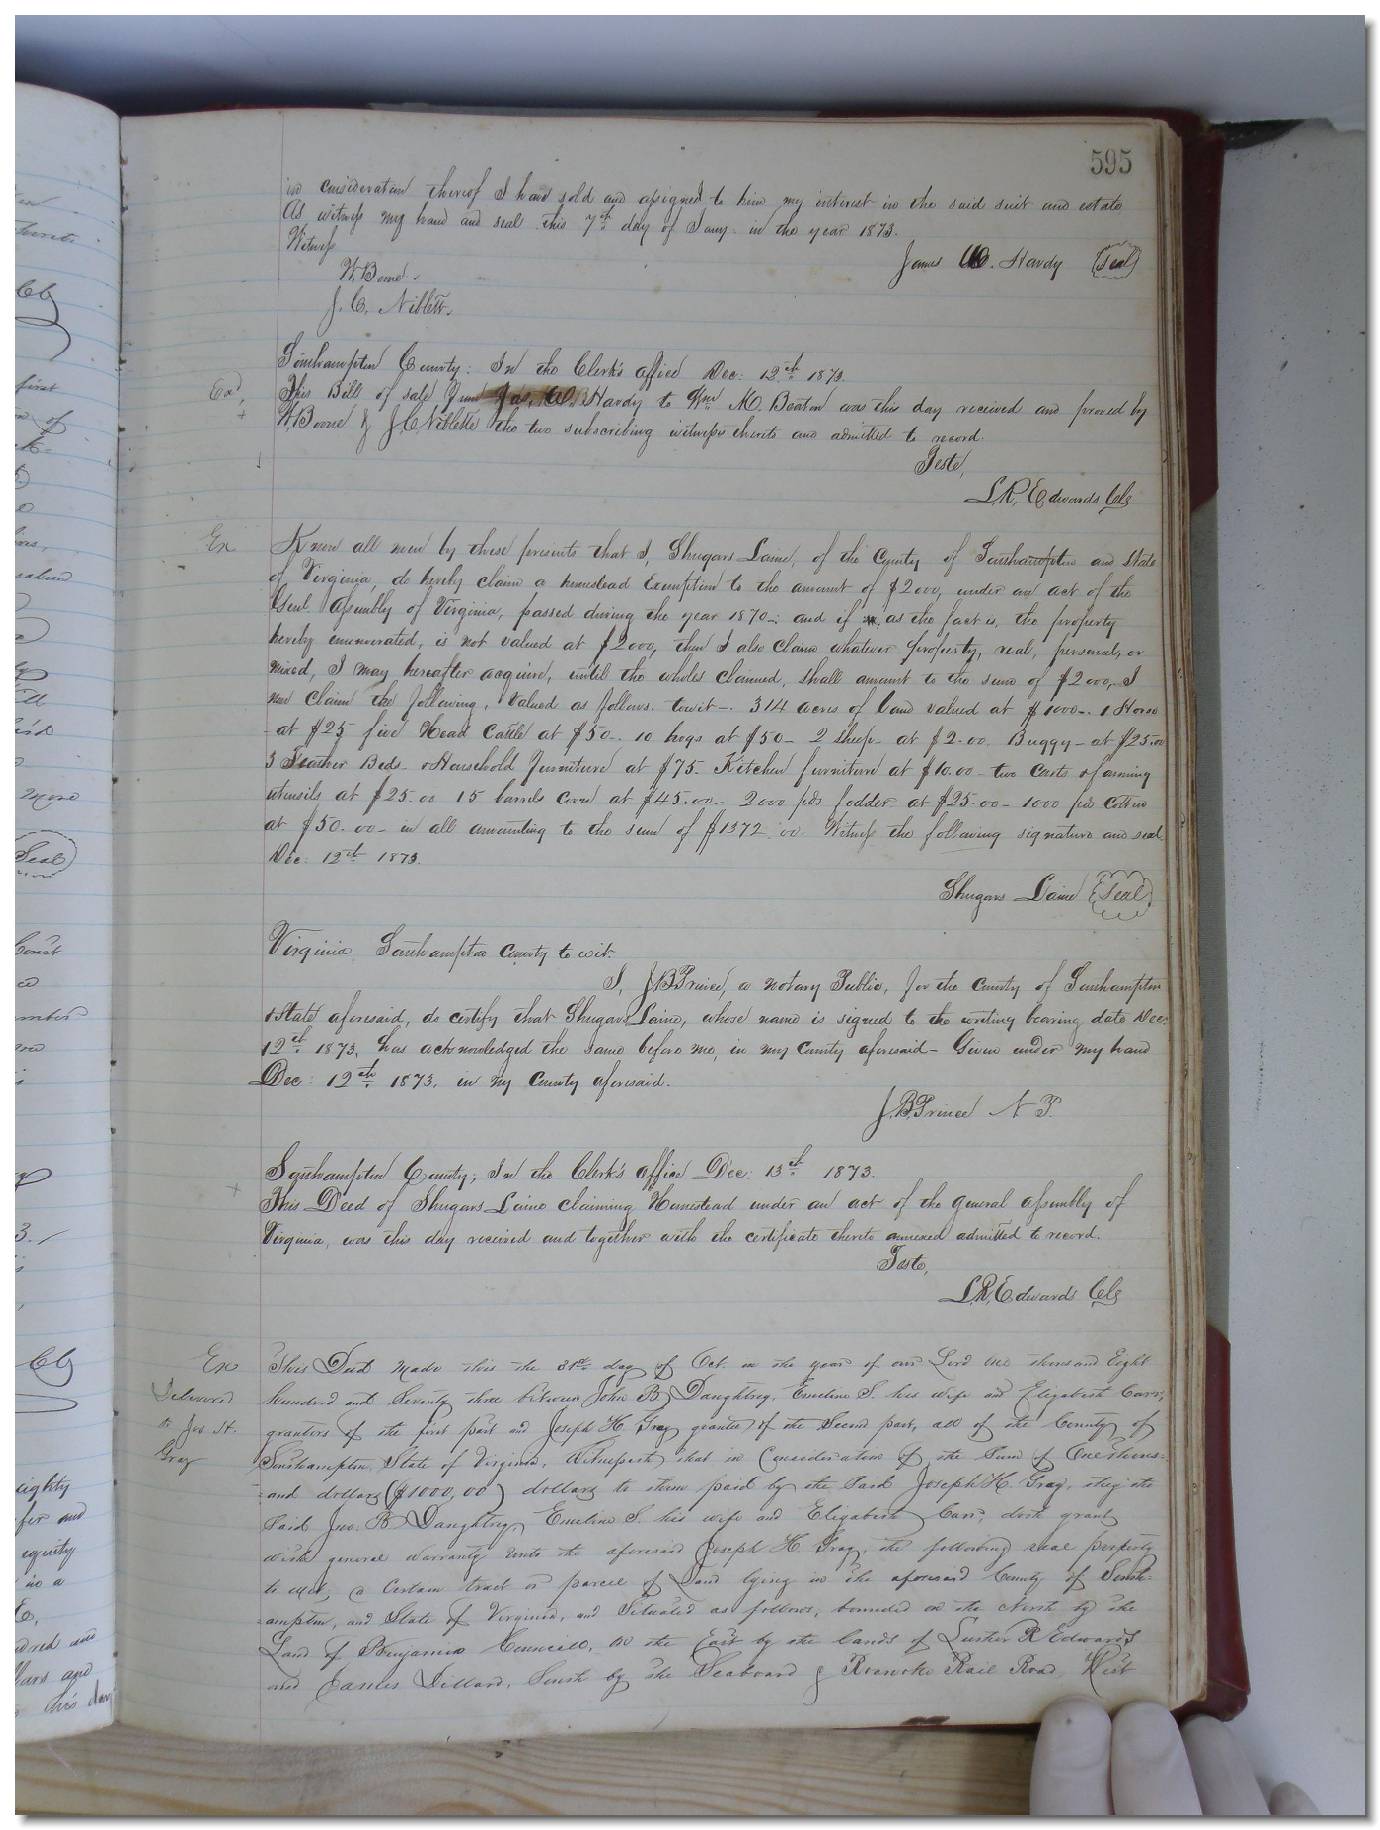 595
in consideration thereof I have sold and assigned to him my interest in the said suit and estate
As witness my hand and seal this 7th day of Jany. in the year 1873.
Witness
James W. Hardy (Seal)
W. Boone.
J. C. Niblett.
Southampton County: In the Clerk's office Dec: 12th 1873.
This Bill of sale from Jas. W. Hardy to Wm M. Beaton was this day received and proved by
W. Boone & J. C. Niblette the two subscribing witnesses thereto and admitted to record.
Teste,
L. R. Edwards Clk
Ex
Know all men by these presents that I, Shugars Laine, of the County of Southampton and State
of Virginia, do hereby claim a homestead Exemption to the amount of $2000, under an act of the
Genl. Assembly of Virginia, passed during the year 1870-; and if as the fact is, the property
hereby enumerated, is not valued at $2000, then I also claim whatever property, real, personal, or
mixed, I may hereafter acquire, until the whole claimed, shall amount to the sum of $2000, I
now claim the following, valued as follows. towit-. 314 acres of land valued at $1000-. 1 Horse
at $25 five Head Cattle at $50-. 10 hogs at $50- 2 sheep- at $2.00. Buggy- at $25.00
3 Feather Beds & Household furniture at $75. Kitchen furniture at $10.00- two Carts & farming
utensils at $25.00 15 barrels Corn at $45.00. 2000 pds fodder at $25.00- 1000 pds Cotton
at $50.00- in all amounting to the sum of $1372.00 Witness the following signature and seal
Dec: 12th 1873.
Shugars Laine (Seal)
Virginia Southampton County to wit:
I, J. B. Prince, a notary Public, for the County of Southampton
& State aforesaid, do certify that Shugars Laine, whose name is signed to the writing bearing date Dec:
12th 1873, has acknowledged the same before me, in my County aforesaid- Given under my hand
Dec: 12th 1873, in my County aforesaid.
J. B. Prince N. P.
Southampton County; In the Clerk's office Dec: 13th 1873.
This Deed of Shugars Laine claiming Homestead under an act of the general assembly of
Virginia, was this day received and together with the certificate thereto annexed admitted to record.
Teste,
L. R. Edwards Clk
Ex
Delivered
to Jos. H.
Gray
This Deed made this the 31st day of Oct. in the year of our Lord one thousand Eight
hundred and Seventy three between John B. Daughtrey, Emeline S. his wife and Elizabeth Carr,
grantors of the first part and Joseph H. Gray grantee of the Second part, all of the County of
Southampton, State of Virginia, Witnesseth, that in Consideration of the Sum of One thous-
-and dollars ($1000,00) dollars to them paid by the Said Joseph H. Gray, they the
Said Jno. B Daughtrey, Emeline S. his wife and Elizabeth Carr, doth grant
with general warranty unto the aforesaid Joseph H. Gray, the following real property
to wit; a Certain tract or parcel of Land lying in the aforesaid County of South-
-ampton, and State of Virginia, and Situated as follows, bounded on the North by the
Land of Benjamin Councill, on the East by the lands of Luther R Edwards
and James Dillard, South by the Seaboard & Roanoke Rail Road, West